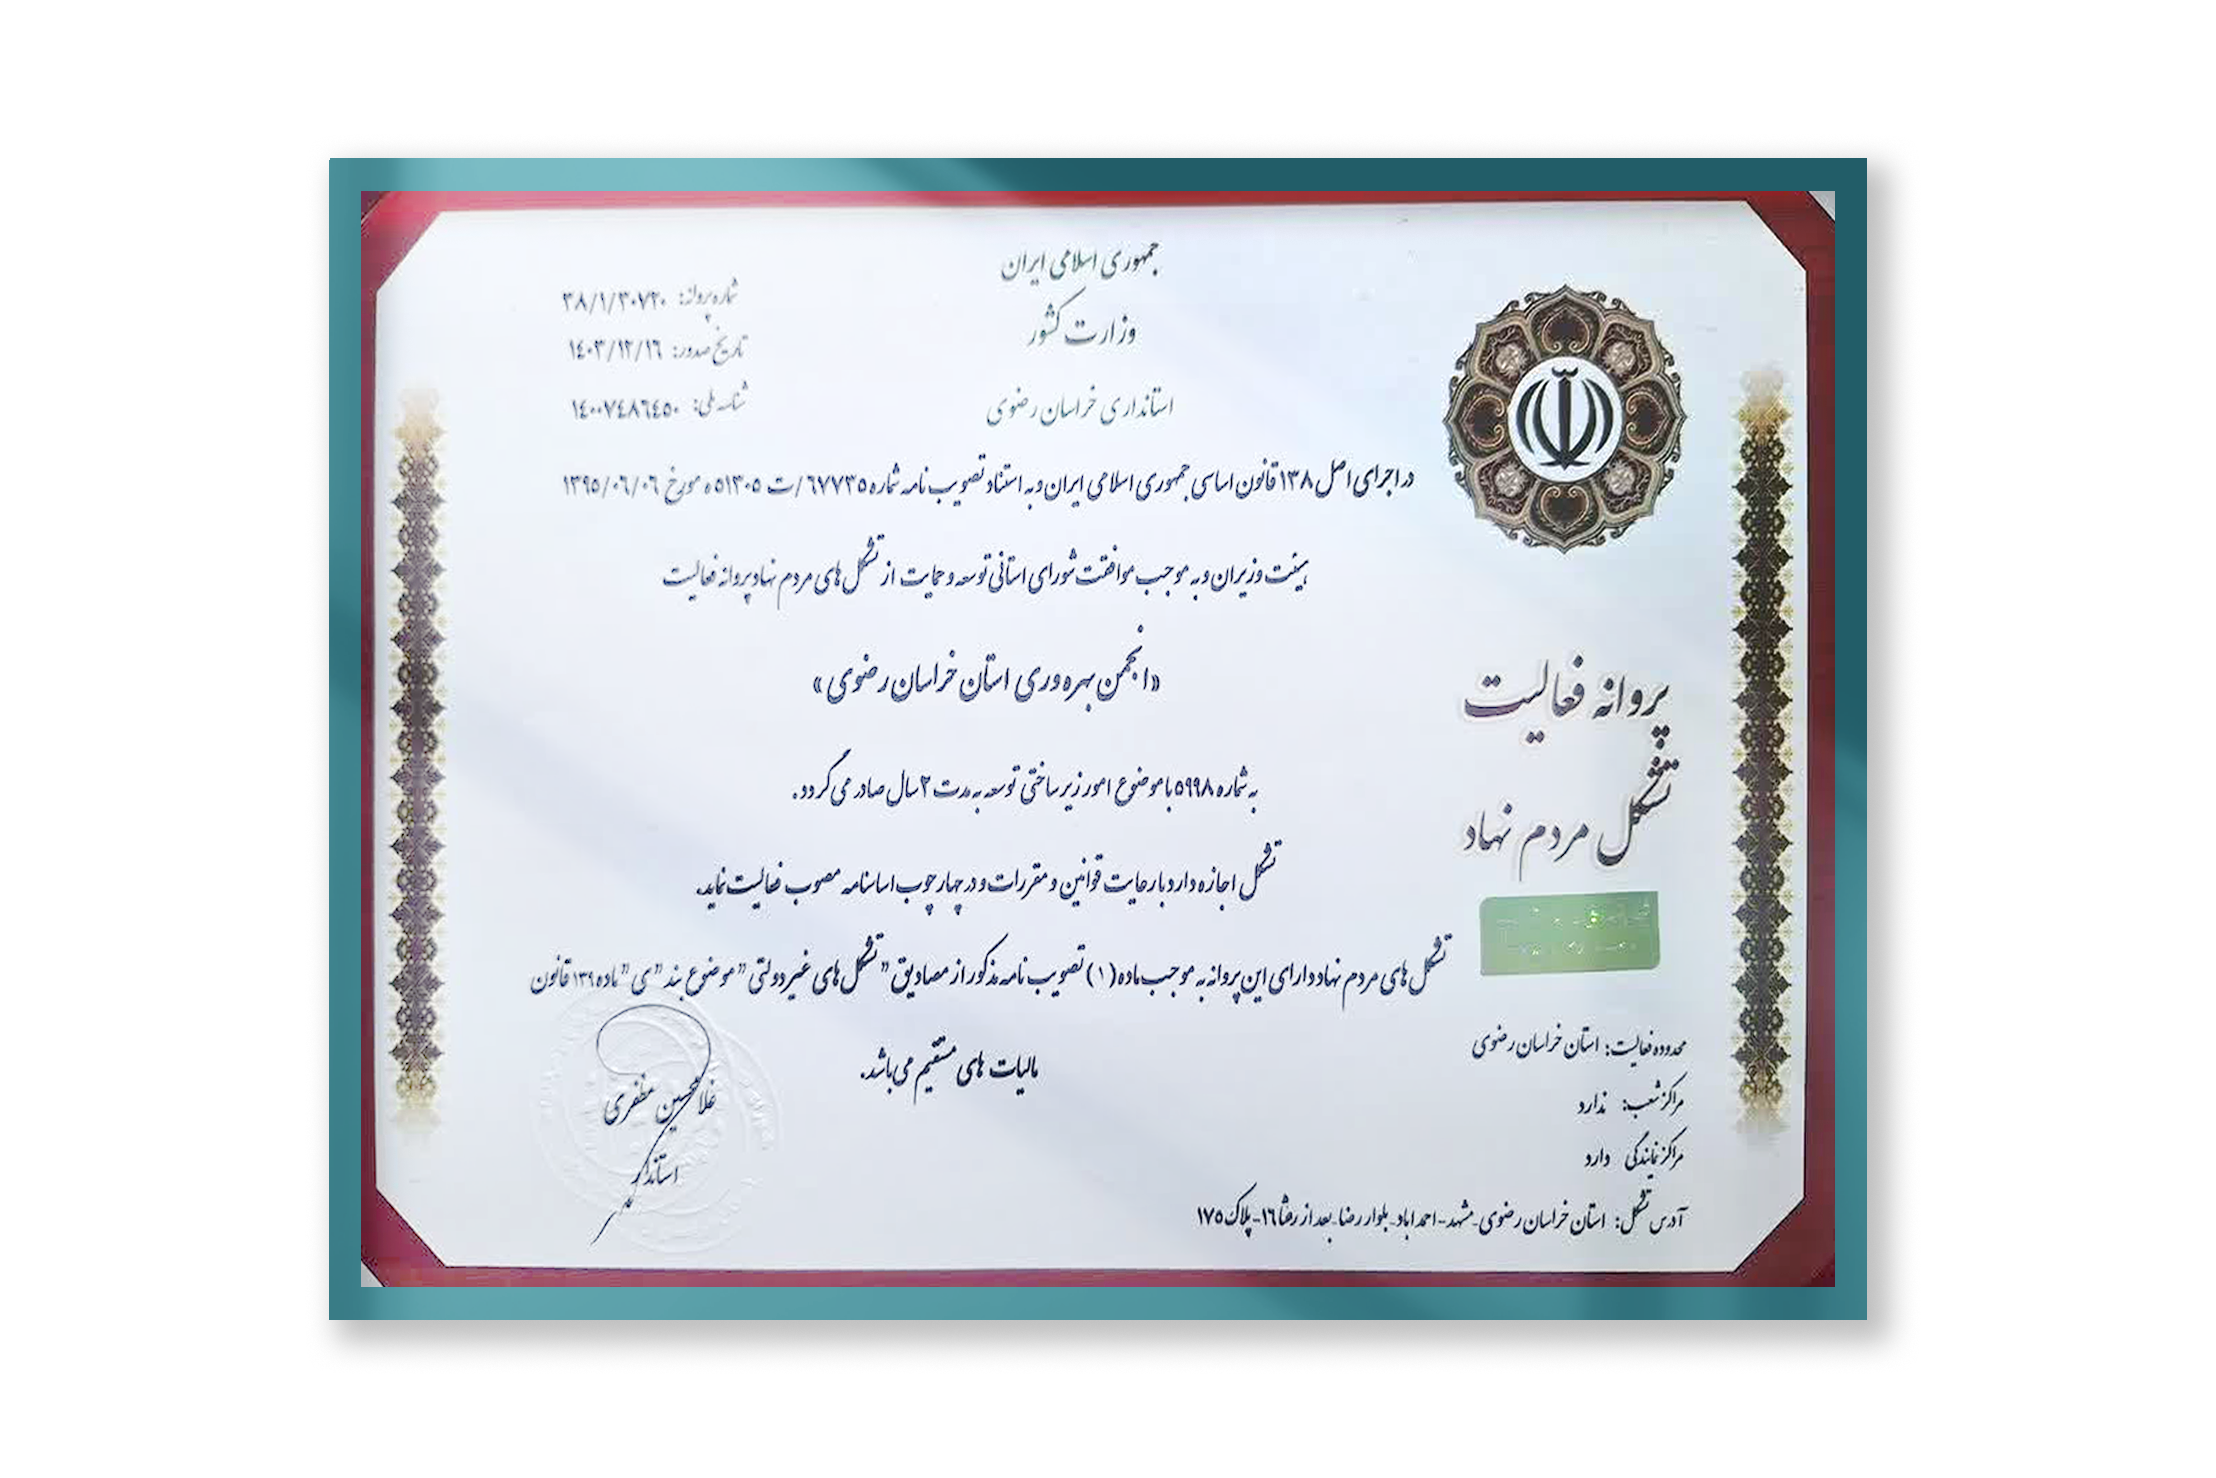 جمهوری اسلامی ایران
وزارت کشور
استانداری خراسان رضوی
شماره پروانه: ۳۸/۱/۳۰۷۲۰
تاریخ صدور: ۱۴۰۳/۱۲/۱۶
شناسه ملی: ۱۴۰۰۷۴۸۶۴۵۰
در اجرای اصل ۱۳۸ قانون اساسی جمهوری اسلامی ایران و به استناد تصویب نامه شماره ۶۷۷۳۵/ت ۵۱۳۰۵ه مورخ ۱۳۹۵/۰۶/۰۶
هیئت وزیران و به موجب موافقت شورای استانی توسعه و حمایت از تشکل های مردم نهاد پروانه فعالیت
«انجمن بهره وری استان خراسان رضوی»
به شماره ۵۹۹۸ با موضوع امور زیرساختی توسعه به مدت ۲ سال صادر می گردد.
تشکل اجازه دارد با رعایت قوانین و مقررات و در چهارچوب اساسنامه مصوب فعالیت نماید.
تشکل های مردم نهاد دارای این پروانه به موجب ماده (۱) تصویب نامه مذکور از مصادیق "تشکل های غیردولتی" موضوع بند "ی" ماده ۱۳۹ قانون
مالیات های مستقیم می باشد.
غلامحسین مظفری
استاندار
پروانه فعالیت
تشکل مردم نهاد
محدوده فعالیت: استان خراسان رضوی
مراکز شعب: ندارد
مراکز نمایندگی دارد
آدرس تشکل: استان خراسان رضوی-مشهد-احمد اباد-بلوار رضا-بعد از رضا ۱۶-پلاک ۱۷۵